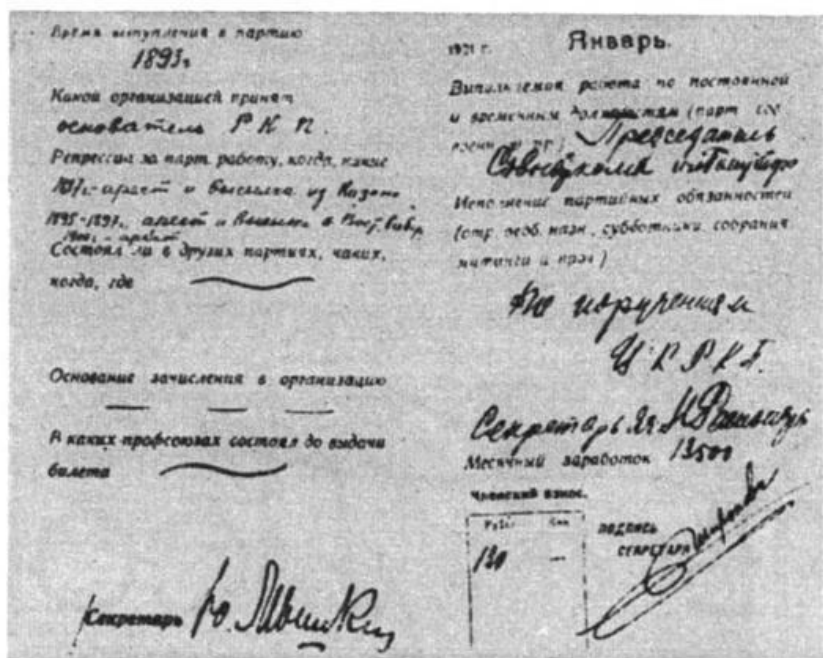 Время вступления в партию
1893 г.
Какой организацией принят
основатель Р К П.
Репрессии за парт. работу, когда, какие
арест и высылка из Казани
1895-1897г. арест и высылка в Вост. Сибир
Состоял ли в других партиях, каких,
когда, где
Основание зачисления в организацию
— — —
В каких профсоюзах состоял до выдачи
билета
Секретарь
1921 г. Январь.
Выполняемая работа по постоянной
и временным должностям (парт. сов.
Председатель
Совнаркома
Исполнение партийных обязанностей
(отр. особ. назн., субботники, собрания
митинги и проч.)
По поручениям
Ц К Р К П.
Секретарь Яч.
Месячный заработок 13500
Членский взнос.
Руб. Коп.
130 —
подпись
СЕКРЕТАРЯ